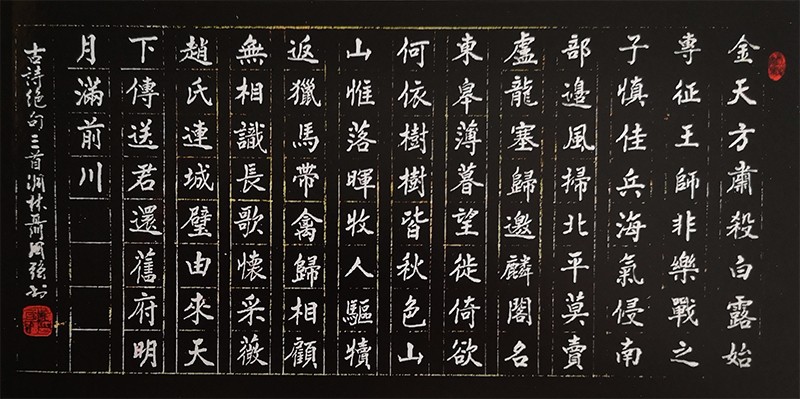 金天方肅殺白露始
專征王師非樂戰之
子慎佳兵海氣侵南
部邊風掃北平莫賣
盧龍塞歸邀麟閣名
東皋薄暮望徙倚欲
何依樹樹皆秋色山
山惟落暉牧人驅犢
返獵馬帶禽歸相顧
無相識長歌懷采薇
趙氏連城璧由來天
下傳送君還舊府明
月滿前川
古詩絕句三首林聶國強书